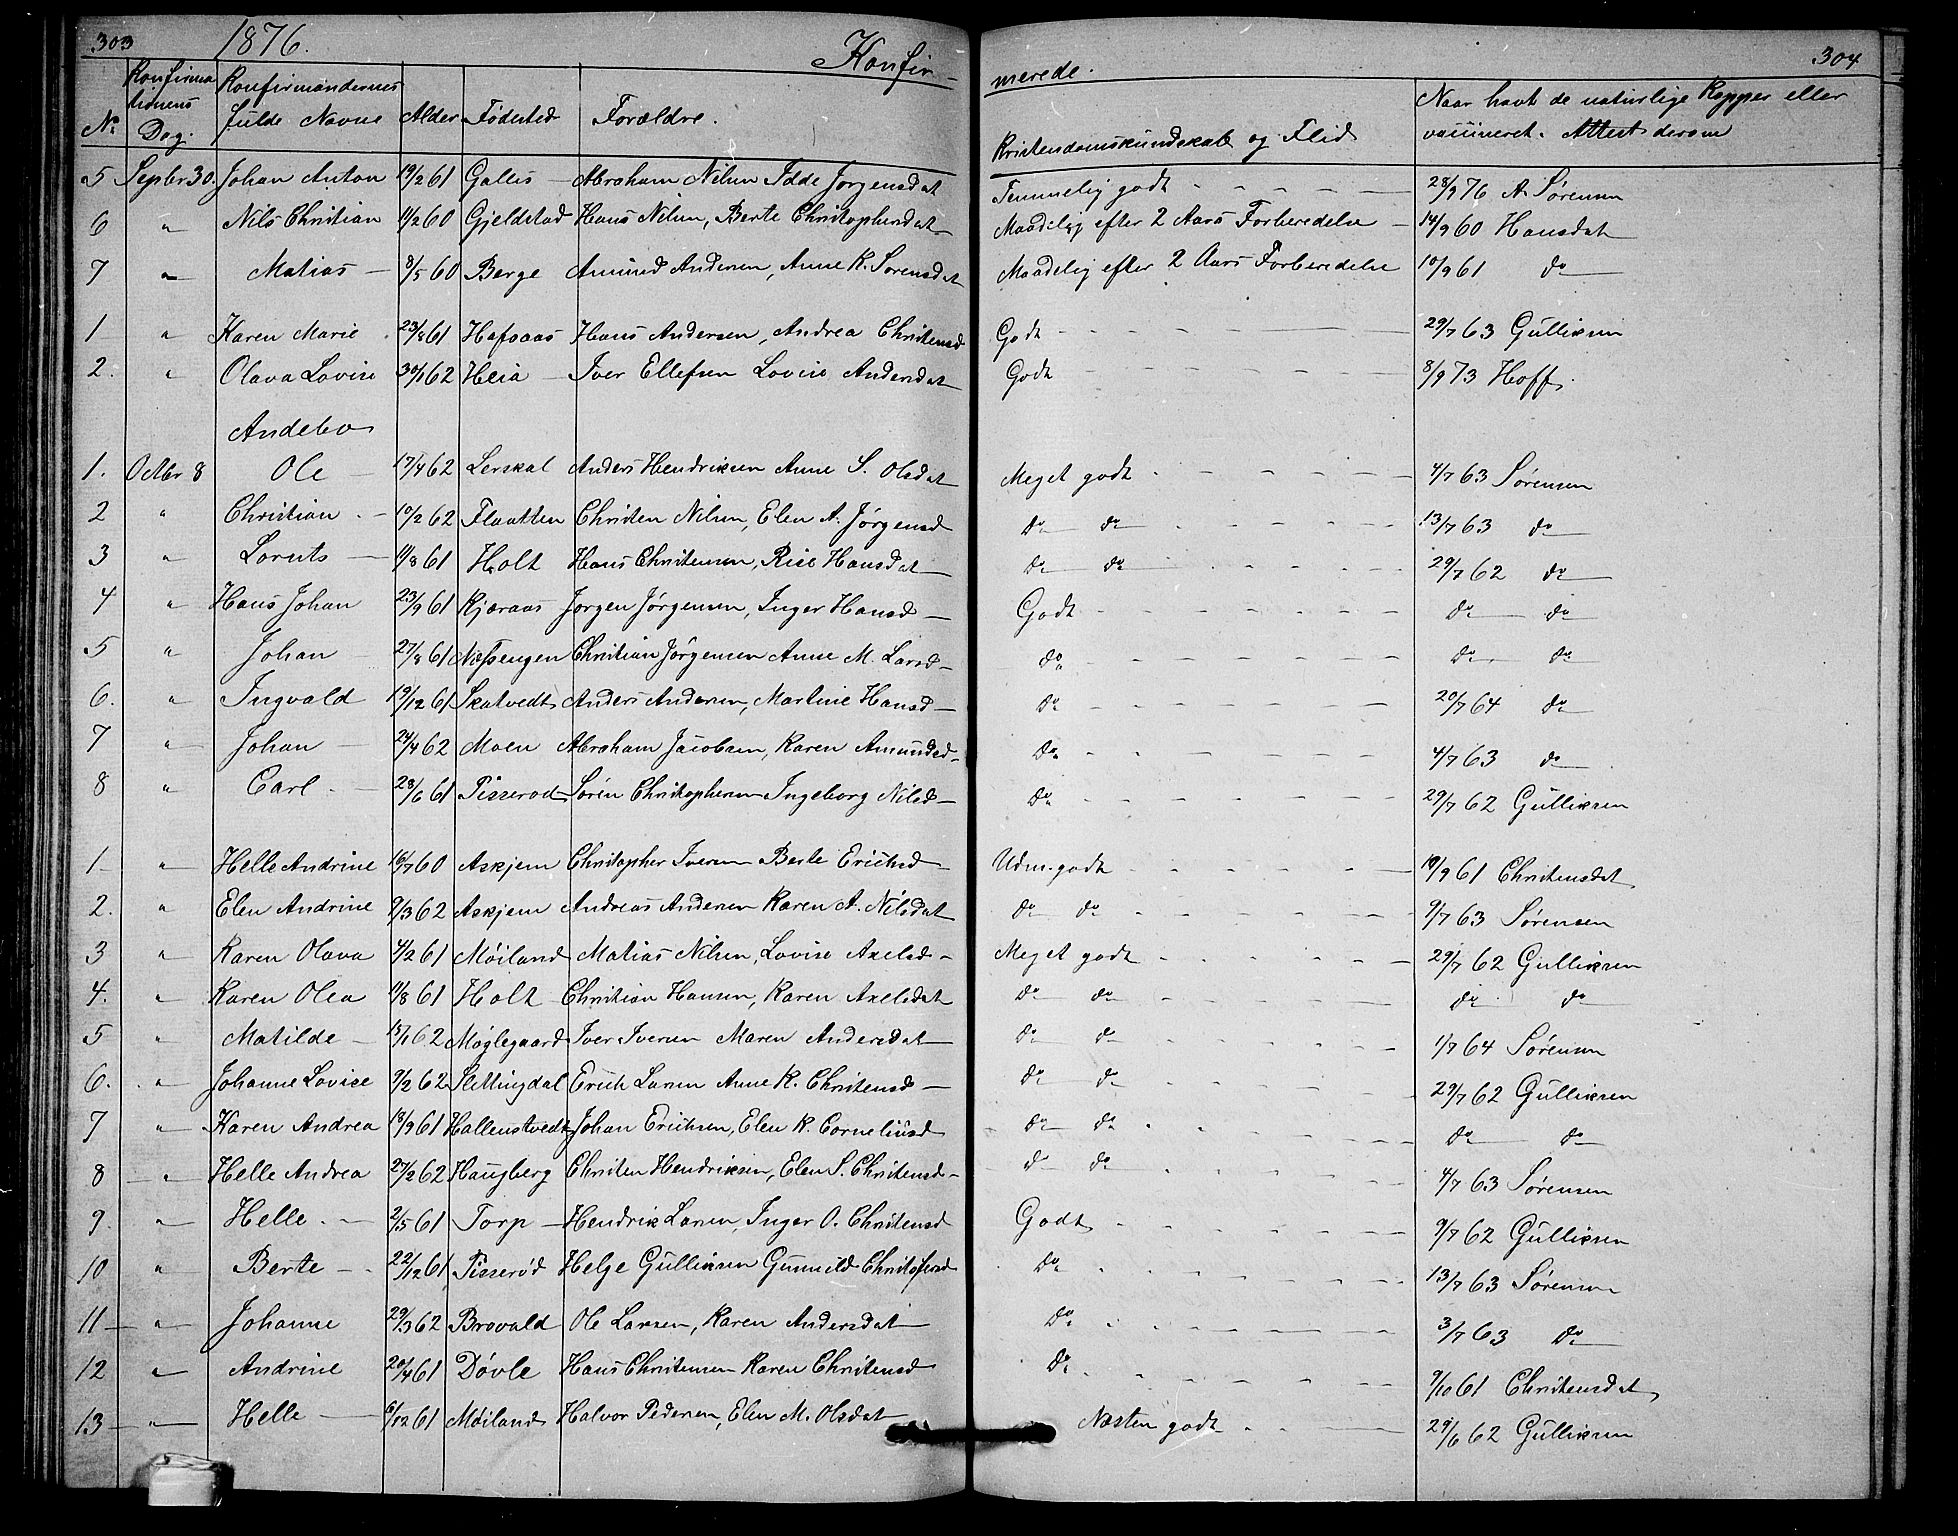 303 1876. Konfir- merede. 304
No Konfirmationens Dag. Konfirmandernes fulde Navne Alder Fødested Forældre. Kristendomskundskab og Flid Naar havt de naturlige Kopper eller vaccineret. Attest derom
5 Septbr 30. Johan Anton 19/2 61 Galeis Abraham Nilsen Idde Jørgensdat Temmelig godt 28/9 76 A. Sørensen
6 " Nils Christian 11/2 60 Gjeldstad Hans Nilsen, Berte Christophersdat Maadelig efter 2 Aars Forberedelse 14/9 60 Hansdat
7 " Matias 8/5 60 Berge Amund Andersen, Anne K. Sørensdat Maadelig efter 2 Aars Forberedelse 10/9 61 do
1 " Karen Marie 23/8 61 Hafsaas Hans Andersen, Andrea Christensd Godt 29/7 63 Gulliksen
2. " Olava Lovise 30/1 62 Heia Iver Ellefsen Lovise Andersdat Godt 8/9 73 Hoff.
Andebo
1. Octbr 8 Ole 17/4 62 Lerskal Anders Hendriksen Anne S. Olsdat Meget godt 4/7 63 Sørensen
2 " Christian 10/2 62 Flaatten Christen Nilsen, Elen A. Jørgensd do do 13/7 63 do
3 " Lorents 11/8 61 Holt Hans Christensen, Rise Hansdat do do 29/7 62 do
4 " Hans Johan 23/9 61 Kjæraas Jørgen Jørgensen, Inger Hansd Godt do do
5 " Johan 27/8 61 Næssengen Christian Jørgensen Anne M. Larsd do do do
6. " Ingvald 19/12 61 Skatvedt Anders Andersen, Martine Hansd do 20/7 64 do
7 " Johan 24/4 62 Moen Abraham Jacobsen, Karen Amundsd do 4/7 63 do
8 " Carl 28/6 61 Pisserød Søren Christophersen Ingeborg Nilsd do 29/7 62 Gulliksen
1 " Helle Andrine 16/7 60 Askjem Christopher Iversen Berte Erichsd Udm. godt 18/9 61 Christensdat
2. " Elen Andrine 9/3 62 Askjem Andreas Andersen Karen A. Nilsdat do do 9/7 63 Sørensen
3 " Karen Olava 4/2 61 Møiland Matias Nilsen, Lovise Axelsd Meget godt 29/7 62 Gulliksen
4. " Karen Olea 11/8 61 Holt Christian Hansen, Karen Axelsdat do do do do
5 " Matilde 18/1 62 Møglegaard Iver Iversen Maren Andersdat do do 1/7 64 Sørensen
6. " Johanne Lovise 9/2 62 Slettingdal Erich Larsen Anne K. Christensd do do 29/7 62 Gulliksen
7 " Karen Andrea 18/9 61 Hallenstvedt Johan Erichsen, Elen K. Corneliusd do do do do
8 " Helle Andrea 27/2 62 Haugberg Christen Hendriksen, Elen S. Christensd do do 4/7 63 Sørensen
9. " Helle 2/5 61 Torp Hendrik Larsen, Inger O. Christensd Godt 9/7 62 Gulliksen
10 " Berte 22/12 61 Pisserød Helge Gulliksen Gunnild Christofersd do 13/7 63 Sørensen
11 " Johanne 29/3 62 Brovald Ole Larsen, Karen Andersdat do 3/7 63 do
12 " Andrine 20/4 61 Døvle Hans Christensen Karen Christensd do 9/10 61 Christensdat
13 " Helle 6/12 61 Møiland Halvor Pedersen, Elen M. Olsdat Næsten godt 29/6 62 Gulliksen